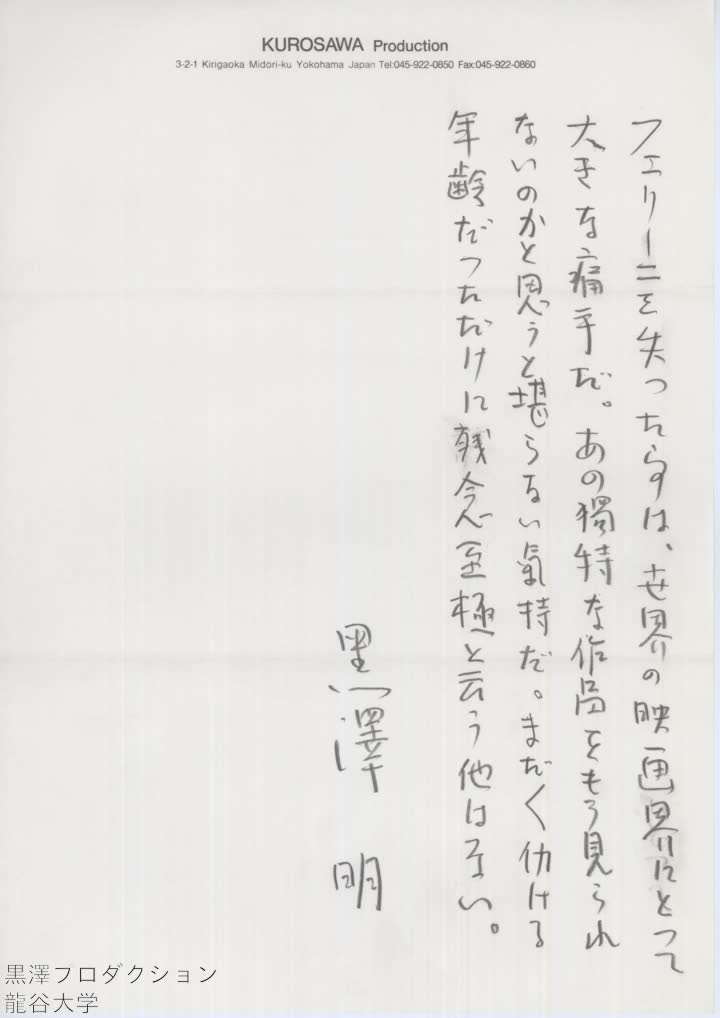 KUROSAWA Production
3-2-1 Kirigaoka Midori-ku Yokohama Japan Tel:045-922-0850 Fax:045-922-0860
フェリーニを失った事は、世界の映画界にとって
大きな痛手だ。あの獨特な作品をもう見られ
ないのかと思うと堪らない氣持だ。まだ〱仂ける
年齢だっただけに残念至極と云う他はない。
黒澤 明
黒澤プロダクション
龍谷大学